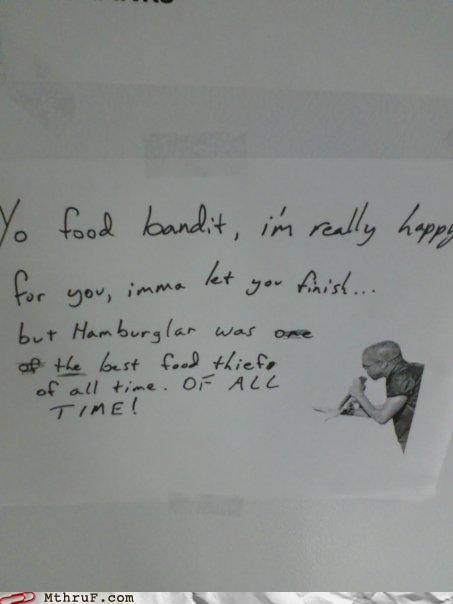 Yo food bandit, i'm really happy
for you, imma let you finish...
but Hamburglar was one
of the best food thiefs
of all time. OF ALL
TIME!
MThruF.com